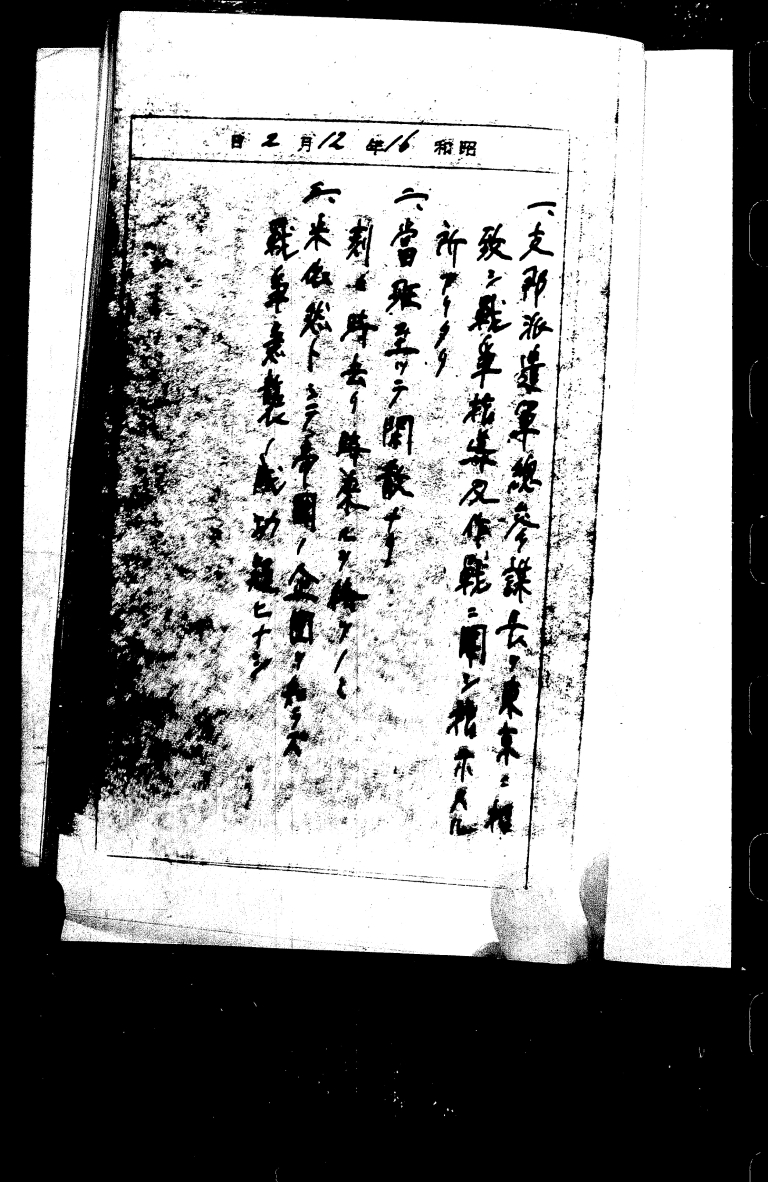 昭和16年12月2日
一、支那派遣軍總參謀長ヲ東京ニ招
致シ戰爭指導及作戰ニ關シ指示スル
所アリタリ
二、當班至ッテ閑散ナリ
刻々時去リ時来ルヲ待ツノミ
三、米依然トシテ帝國ノ企圖ヲ知ラズ
戰爭急襲ノ成功疑ヒナシ